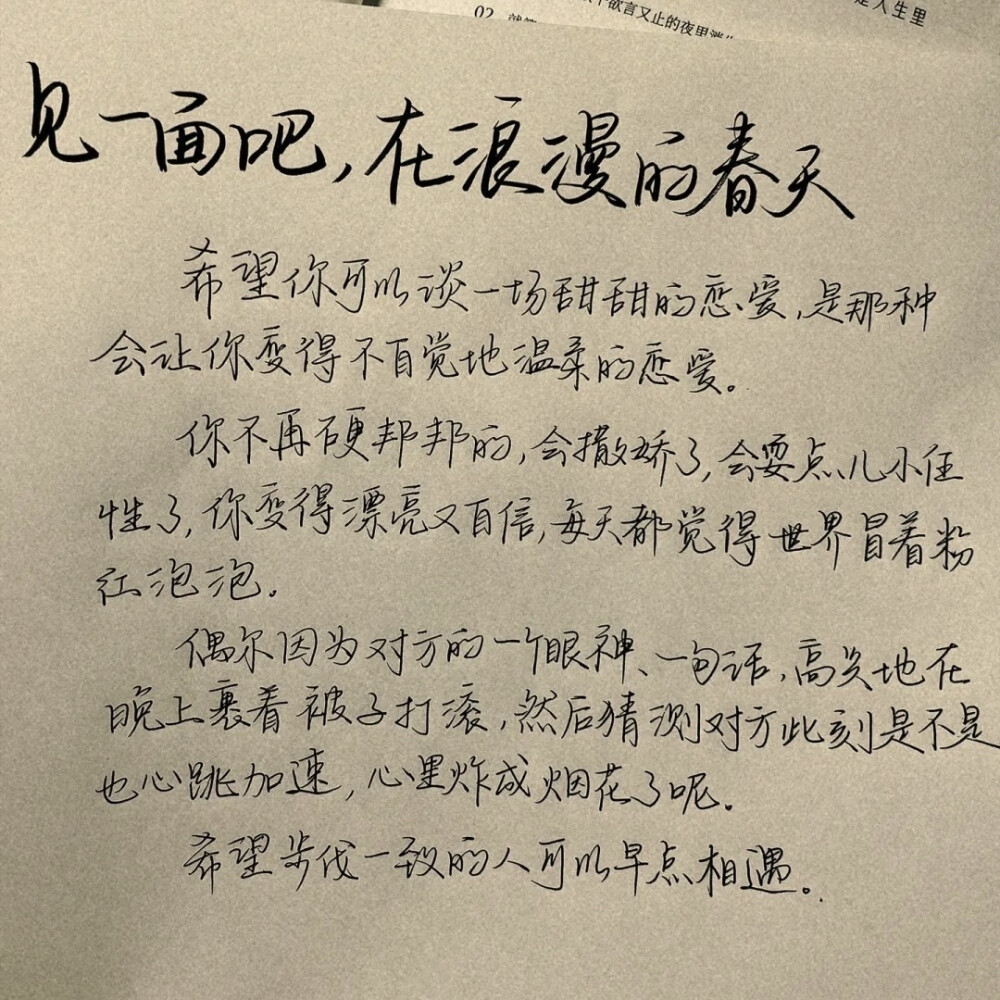 02
欲言又止的夜里
是人生里
见一面吧,在浪漫的春天
希望你可以谈一场甜甜的恋爱,是那种
会让你变得不自觉地温柔的恋爱。
你不再硬邦邦的,会撒娇了,会耍点儿小任
性了,你变得漂亮又自信,每天都觉得世界冒着粉
红泡泡。
偶尔因为对方的一个眼神、一句话,高兴地在
晚上裹着被子打滚,然后猜测对方此刻是不是
也心跳加速,心里炸成烟花了呢。
希望步伐一致的人可以早点相遇。